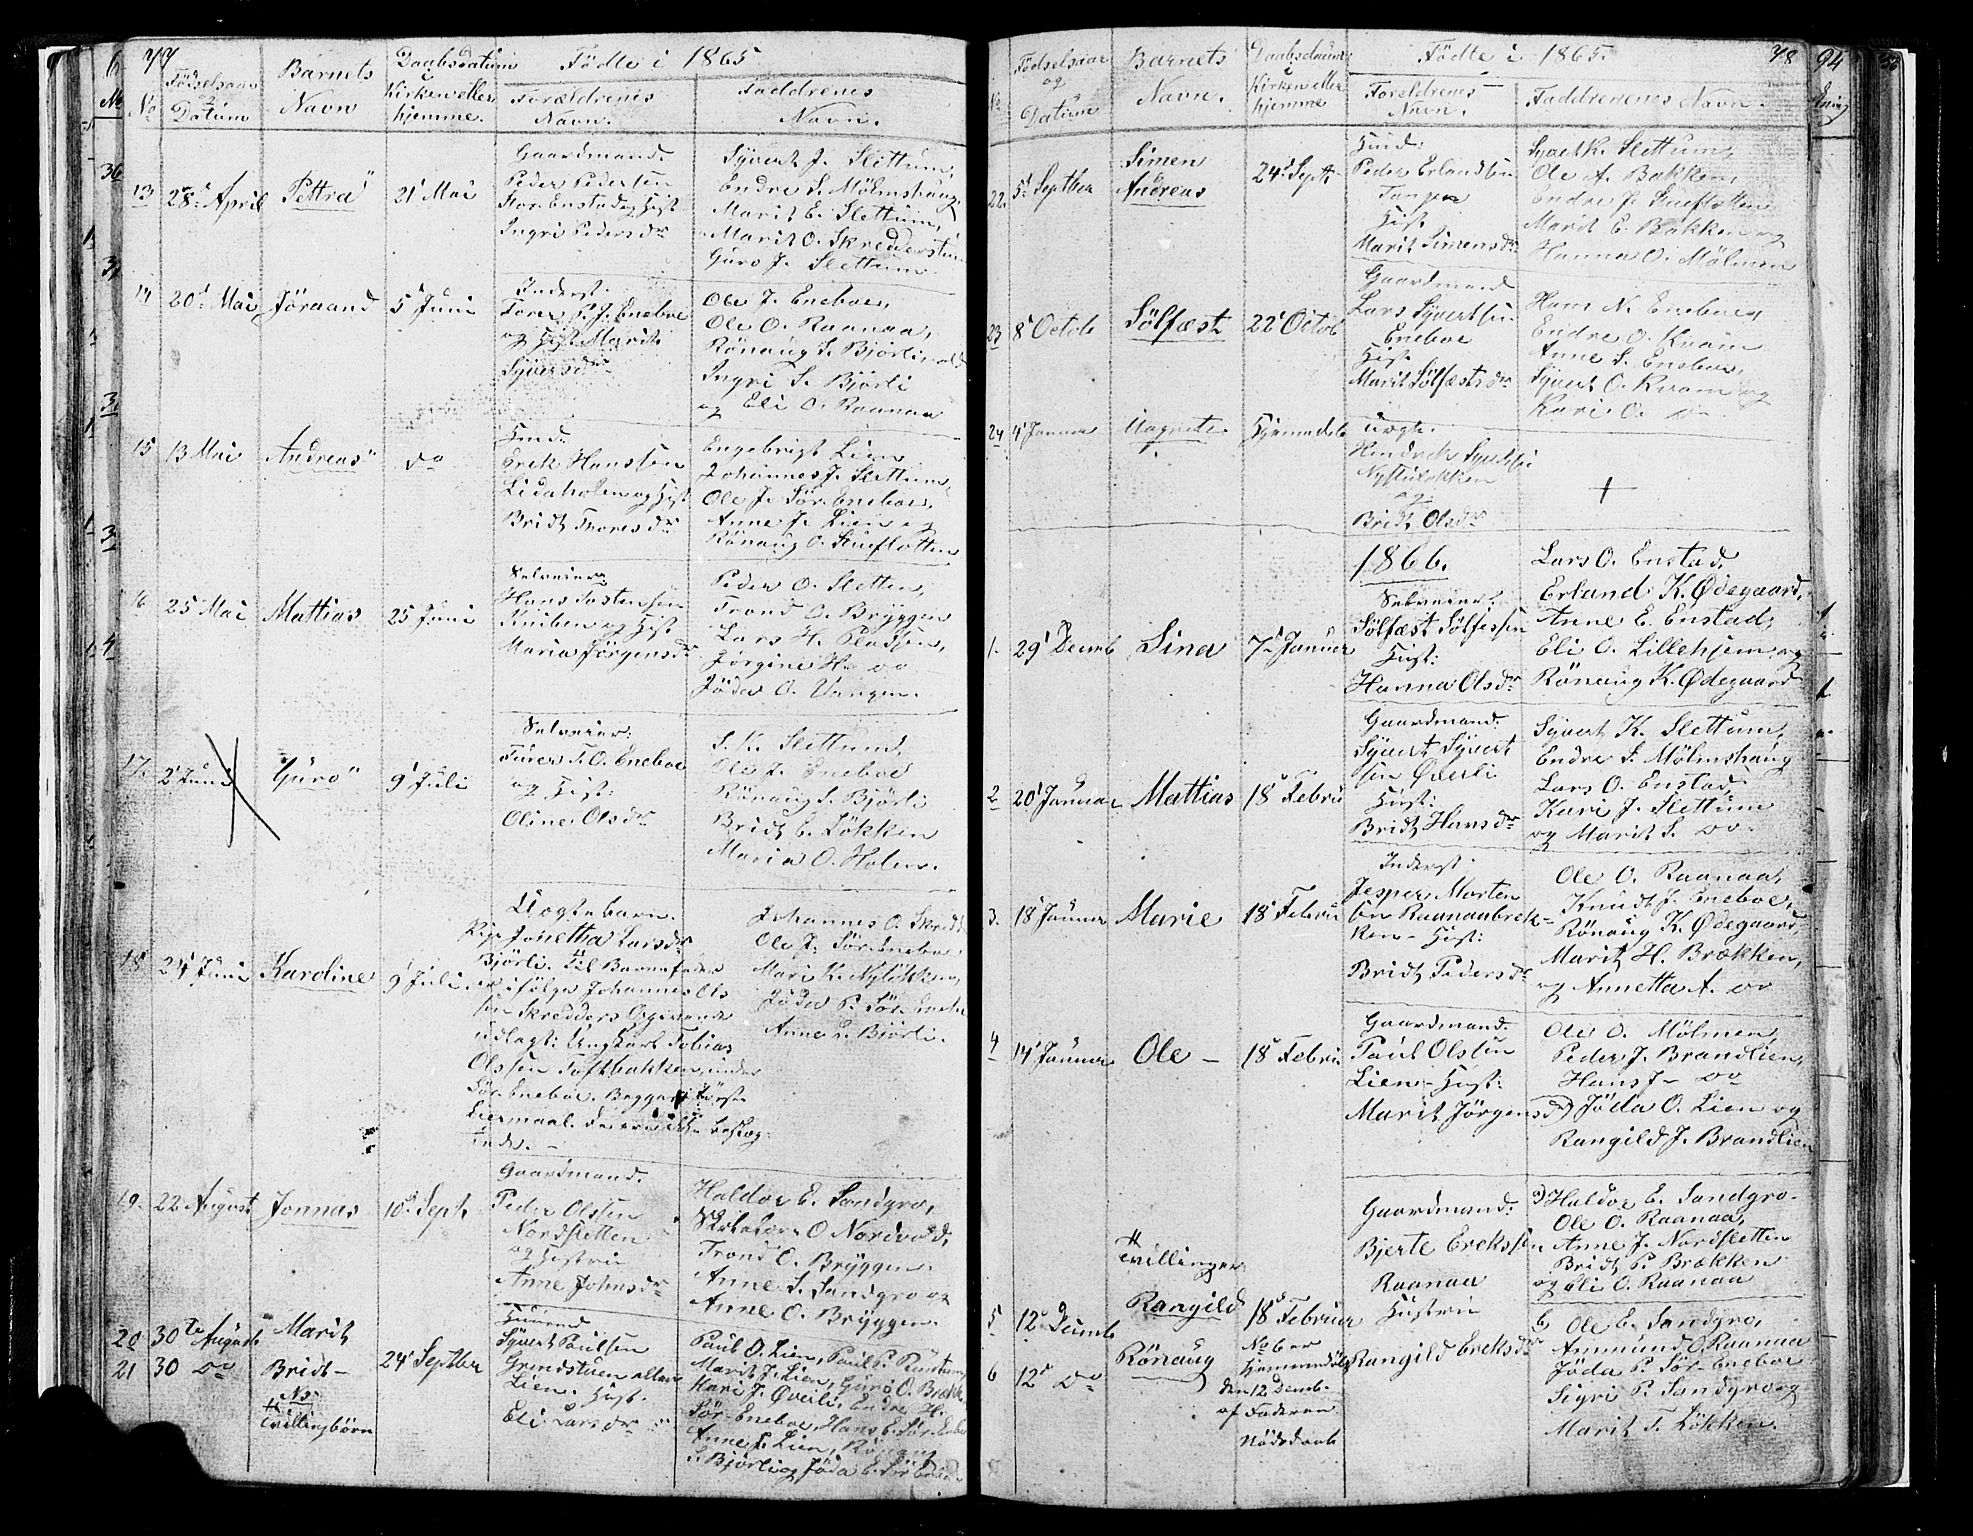 77
Fødte i 1865
No
Datum
Barnets
Navn
Daabsdatum
i
Kirken eller
hjemme.
Forældrenes
Navn.
Faddrenes
Navn.
13
28d April
Pettra
21d Mai
Gaardmand.
Peder Pedersen
Ingri Pedersdr
Syvert J. Slettum,
Endre S. Mölmshaug,
Marit E. Slettum,
Marit O. Skredderstuen
Guro J. Slettum.
14
20d Mai
Jöraand
5d Juni
Inderst.
og Hust Marit
Syversdr
Ole J. Eneboe,
Ole O. Raanaa,
Rönaug S. Björli,
Ingri S. Björli
og Eli O. Raanaa
15
13 Mai
Andreas
do
Hmd.
Erik Hanssen
Lidaholen og Hst
Bridt Thoresdr
Engebrigt Lien
Johannes J. Slettum,
Ole J. Sör-Eneboe,
Anne J. Lien og
Rönaug O. Stueflotten
25 Mai
Mattias
25 Juni
Selveier
Hans Jostensen
og Hst
Maria Jörgensdr
Peder O. Sletten,
Trond O. Bryggen
Lars H. Pladsen,
Jörgine H. do
Jöda O. Uengen.
17.
2d Juni
Guro
9d Juli
Selveier:
og Hust:
Oline Olsdr
S. K. Slettum,
Ole J. Eneboe
Rönaug S. Björli
Bridt E. Lökken
Maria O. Holen.
18
24d Juni
Karoline
9d Juli
Uægtebarn.
Pige Jonetha Larsdr
Björli. Til Barnefader
er ifølge Johannes Ols
sen Skredders Opgivende
udlagt: Ungkarl Tobias
Olssen Toftbakken, under
Sör-Eneboe. Begges förste
Leiermaal.
Johannes O. Skredd
Ole J. Sör-Eneboe
Mari K. Nylökken,
Jöda P. Sör-Eneboe
Anne L. Björli.
19.
22 August
Jonnas
10d Sept
Gaardmand.
Peder Olssen
Nordsletten
og Hustru
Anne Johnsdr
Haldor E. Sandgro,
O. Nordvold,
Trond O. Bryggen,
Anne S. Sandgro og
Anne O. Bryggen.
20
30te August
Marit
21
30 do
Bridt-
Tvillingbörn
24d Septber
Syvert Paulsen
Grindstuen
Lien. Hust.
Eli Larsdr
Paul O. Lien, Paul P.
Marit J. Lien, Guro O.
Kari J. Öveili, Endre H.
Sör-Eneboe, Hans E. Sör-
Anne P. Lien, Rönaug
S. Björli og Jöda E. Sör-
78
94
Fødte i 1865.
No
Fødselsaar
og
Datum
Barnets
Navn.
Daabsdatum
i
Kirken eller
hjemme
Foreldrenes
Nnen.
Faddrenenes Navn.
22.
5d Septber
Simen
Andreas
24d Septr
Husmd:
Peder Erlandsen
Tangen
Hust
Marit Simensdr
Syvert K. Slettum,
Ole A. Bakken,
Endre J. Stueflotten
Marit E. Bakken og
Hanna O. Mölmen
23
8d Octob
Sölfæst
22d Octob
Gaardmand
Lars Syvertsen
Eneboe
Hust
Marit Sölfæstsdr
Hans N. Eneboe,
Endre O. Kvam
Anne S. Eneboe,
Syvert O. Kvam og
Kari O. do
24
4d Januar
Hjemmdøbt
Uægte.
Nystulökken
og
Bridt Olsdr
+
1866.
1.
29d Decemb
Sina
7d Januar
Selveier:
Sölfæst Sölfessen
Hust:
Hanna Olsdr
Lars O. Enstad,
Erland K. Ødegaard,
Anne E. Enstad,
Eli O. Lillehjem og
Rönaug K. Ødegaard
2
20d Januar
Mattias
18d Februr
Gaardmand.
Syvert Syvert
sen Överli
Hust:
Bridt Hansdr
Syvert K. Slettum,
Endre S. Mölmshaug
Lars O. Enstad,
Kari J. Slettum
og Marit S. do.
3.
18d Januar
Marie
18d Februr
Inderst
Jesper Morten
sen Raanaabrek-
ken - Hust:
Bridt Pedersdr
Ole O. Raanaa,
Knudt J. Eneboe,
Rönaug K. Ødegaard,
Marit H. Brækken,
og Annetta A. do
4
14d Januar
Ole -
18d Februr
Gaardmand.
Paul Olssen
Lien - Hust:
Marit Jörgensdr
Ole O. Mölmen,
Peder J. Brandlien,
Hans J- do
Jöda O. Lien og
Rangild J. Brandlien
Tvillinger
5
12d Decemb
Rangild
18d Februar
6
12d do
Rönaug
No 6 er
Hjemmedøbt
den 12 Decemb.
af Faderen
Nödsdaab
Gaardmand:
Bjerte Ereksen
Raanaa
Hustru
Rangild Ereksdr
5) Haldor E. Sandgro.
Ole O. Raanaa,
Anne J. Nordsletten
Bridt P. Brækken
og Eli O. Raanaa
6 Ole E. Sandgro,
Ammund O. Raanaa
Jöda P. Sör-Eneboe
Sigri P. Sandgro og
Marit T. Lökken.